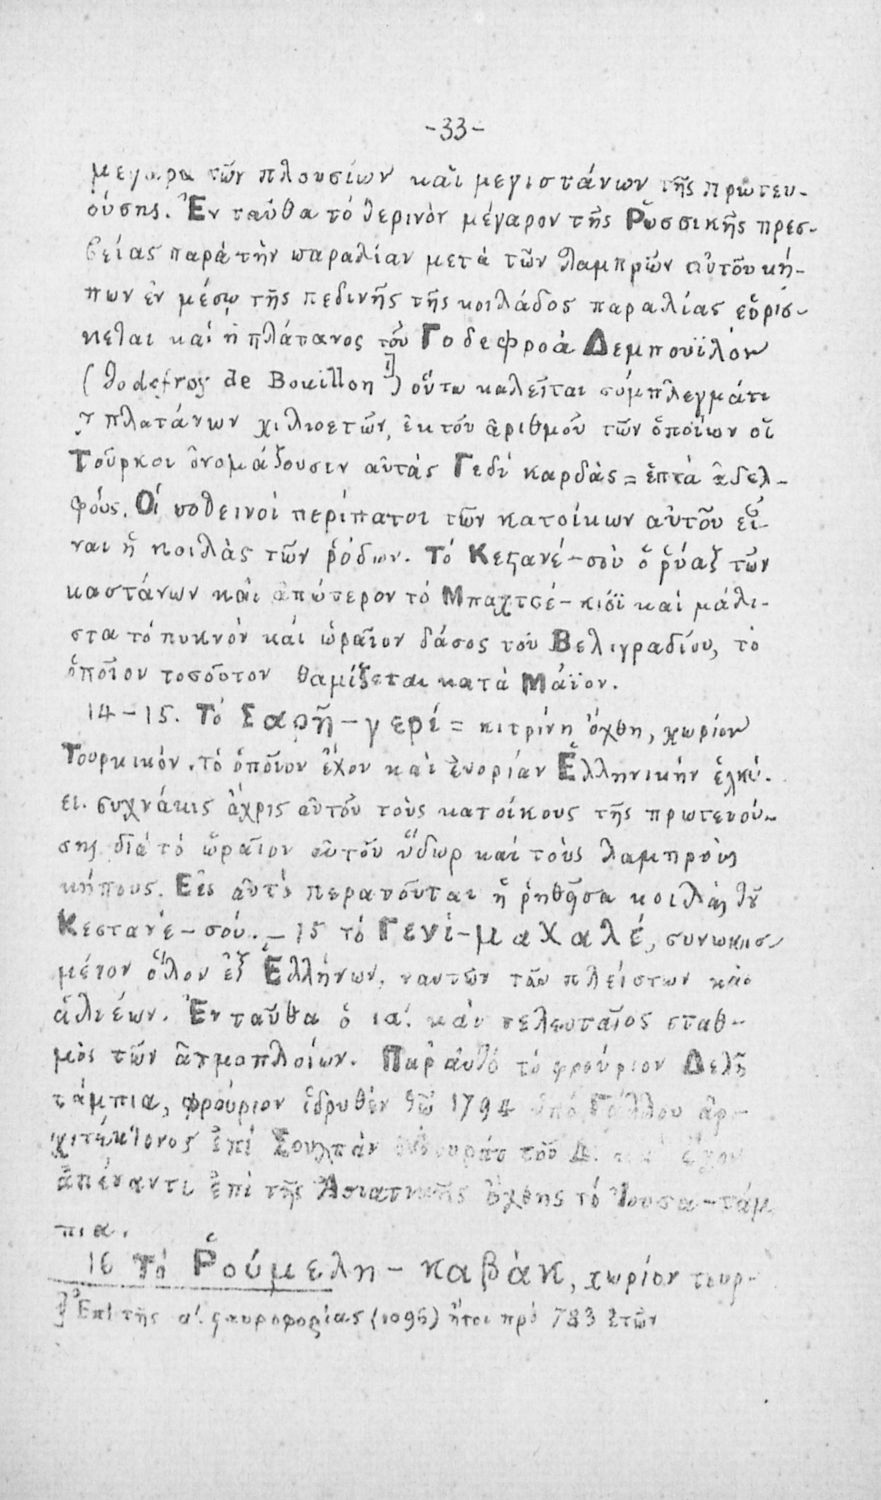 -33-
μεγαρα τῶν πλουσίων καὶ μεγιστάνων τῆς πρωτευ-
ούσης. Ἐν ταῦθα τὸ θερινὸν μέγαρον τῆς Ῥωσσικῆς πρεσ-
βείας παρὰ τὴν παραλίαν μετὰ τῶν λαμπρῶν αὐτοῦ κή-
πων ἐν μέσῳ τῆς πεδινῆς τῆς κοιλάδος παραλίας εὑρίσ-
κεται καὶ ἡ πλάτανος τοῦ Γοδεφροὰ Δεμπουϊλὸν
(Godefroy de Bouillon 1) οὕτω καλεῖται σύμπλεγμά τι
7 πλατάνων χιλιοετῶν, ἐκ τοῦ ἀριθμοῦ τῶν ὁποίων οἱ
Τοῦρκοι ὀνομάζουσιν αὐτὰς Γεδὶ καρδὰς = ἑπτὰ ἀδελ-
φούς. Οἱ ποθεινοὶ περίπατοι τῶν κατοίκων αὐτοῦ εἶ-
ναι ἡ κοιλὰς τῶν ῥόδων. Τὸ Κεστανέ-σοὺ ὁ ῥύαξ τῶν
καστάνων καὶ ἀπώτερον τὸ Μπαχτσέ-κιόϊ καὶ μάλι-
στα τὸ πυκνὸν καὶ ὡραῖον δάσος τοῦ Βελιγραδίου, τὸ
ὁποῖον τοσοῦτον θαμίζεται κατὰ Μάϊον.
14-15. Τὸ Σαρῆ-γερί = κιτρίνη ὄχθη, χωρίον
Τουρκικὸν, τὸ ὁποῖον ἔχον καὶ ἐνορίαν Ἑλληνικὴν ἑλκύ-
ει συχνάκις ἄχρις αὐτοῦ τοὺς κατοίκους τῆς πρωτευού-
σης διὰ τὸ ὡραῖον αὐτοῦ ὕδωρ καὶ τοὺς λαμπροὺς
κήπους. Εἰς αὐτὸ περατοῦται ἡ ῥηθεῖσα κοιλὰς τοῦ
Κεστανέ-σού. - 15 τὸ Γενί-μαχαλέ, συνωκισ-
μένον ὅλον ἐξ Ἑλλήνων, ναυτῶν τῶν πλείστων καὶ
ἁλιέων. Ἐν ταῦθα ὁ ια'. καὶ τελευταῖος σταθ-
μὸς τῶν ἀτμοπλοίων. Παρ' αὐτὸ τὸ φρούριον Δελῆ
τάμπια, φρούριον ἱδρυθὲν τῷ 1794 ὑπὸ Γάλλου ἀρ-
χιτέκτονος ἐπὶ Σουλτὰν Μουρὰτ τοῦ Δ. καὶ ἔχον
ἀπέναντι ἐπὶ τῆς Ἀσιατικῆς ὄχθης τὸ Ἰουσα-τάμ
πια.
16 Τὸ Ῥούμελη-καβάκ, χωρίον τουρ-
1) Ἐπὶ τῆς α'. σταυροφορίας (1096) ἤτοι πρὸ 783 ἐτῶν